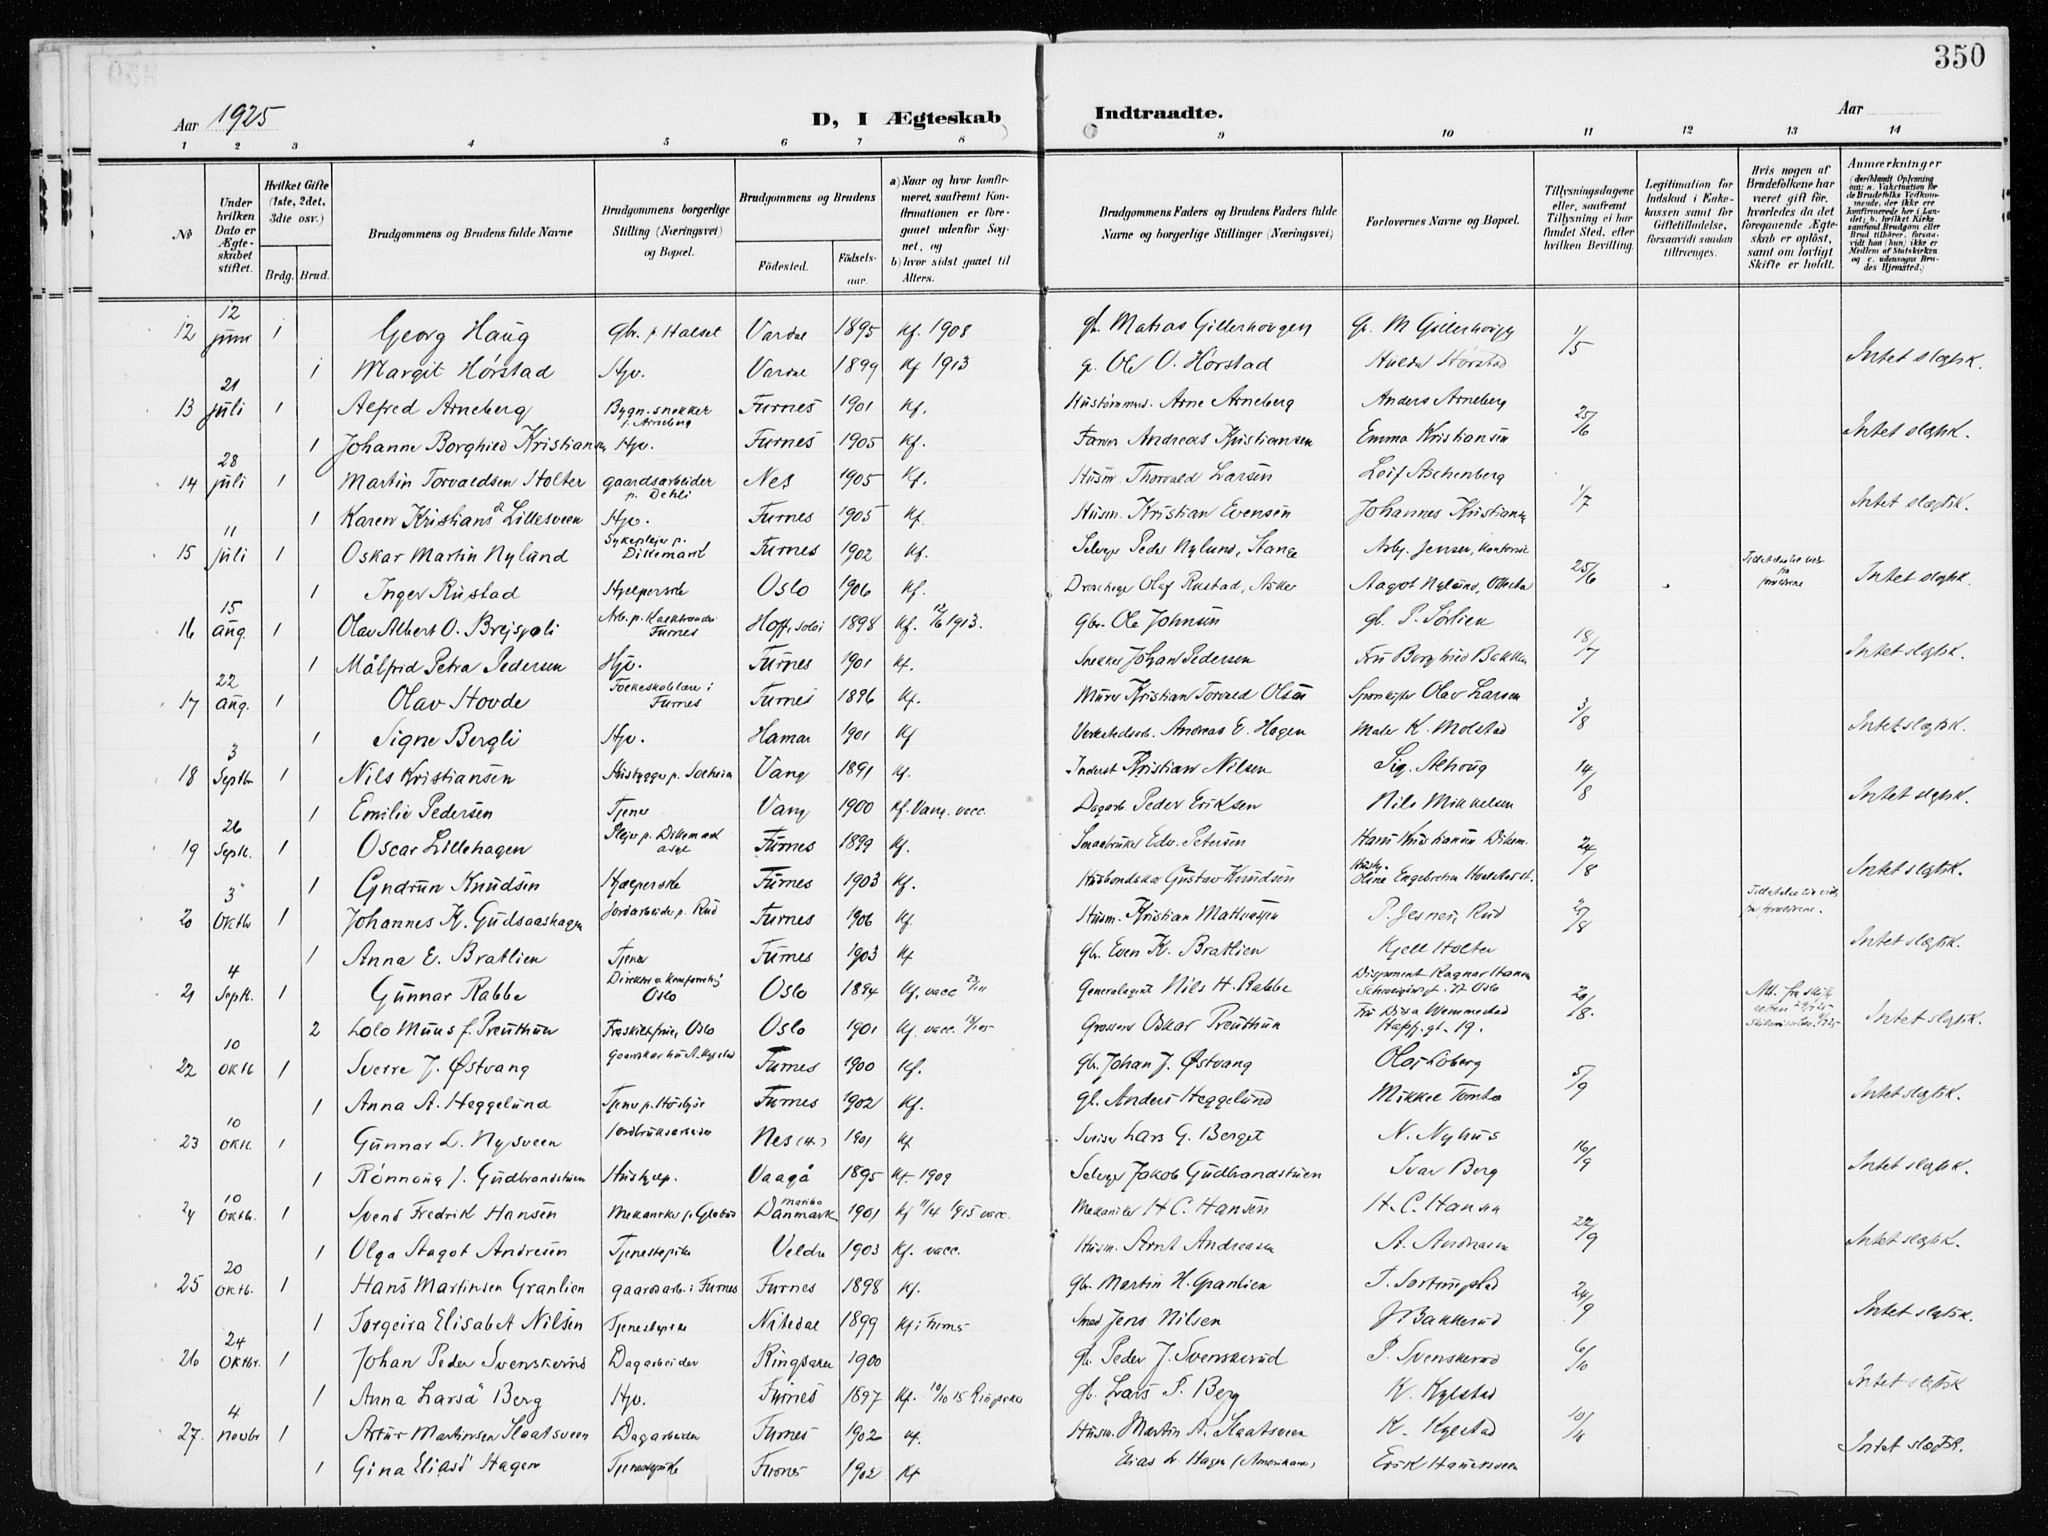 350
Aar 1925 D, I Ægteskab Indtraadte. Aar
1 2 3 4 5 6 7 8 9 10 11 12 13 14
No
Under hvilken Dato er Ægteskabet stiftet.
Hvilket Gifte (1ste, 2det, 3die osv.)
Brdg. Brud.
Brudgommens og Brudens fulde Navne
Brudgommens borgerlige Stilling (Næringsvei) og Bopæl.
Brudgommens og Brudens
Fødested. Fødselsaar.
a) Naar og hvor konfirmeret, saafremt Konfirmationen er foregaaet udenfor Sognet, og
b) hvor sidst gaaet til Alters.
Brudgommens Faders og Brudens Faders fulde Navne og borgerlige Stillinger (Næringsvei)
Forlovernes Navne og Bopæl.
Tillysningsdagene eller, saafremt Tillysning ei har fundet Sted, efter hvilken Bevilling.
Legitimation for Indskud i Enkekassen samt for Giftetilladelse, forsaavidt saadan tiltrænges.
Hvis nogen af Brudefolkene har været gift før, hvorledes da det foregaaende Ægteskab er opløst, samt om lovligt Skifte er holdt.
Anmærkninger (deriblandt Oplysning om: a. Vaksination for de Brudefolks Vedkommende, der ikke ere konfirmerede her i Landet; b. hvilket Kirkesamfund Brudgom eller Brud tilhører, forsaavidt han (hun) ikke er Medlem af Statskirken og c. udensogns Brudes Hjemsted.)
12 12 juni 1 Georg Haug gbr. p Halset Vardal 1895 Kf. 1908 gbr. Matias Gillerhaugen g. M Gillerhaugen 1/5
1 Margit Hørstad Hjv. Vardal 1899 Kf 1913 g. Ole O. Hørstad Hørstad Intet slegtsk.
13 21 juli 1 Alfred Arneberg Bygn.snekker p. Arneberg Furnes 1901 Kf. Arne Arneberg Anders Arneberg 25/6
1 Johanne Borghild Kristiansen Hjv. Furnes 1905 Kf. Andreas Kristiansen Emma Kristiansen Intet slegtsk.
14 28 juli 1 Martin Torvaldsen Holter gaardsarbeider p. Dehli Nes 1905 Kf. Husm. Thorvald Larsen Leif Aschenberg 1/7
1 Karen Kristiansd Lillesveen Hjv. Furnes 1905 Kf. Husm. Kristian Evensen Johannes Kristiansen Intet slegtsk.
15 11 juli 1 Oskar Martin Nylund Sykepleier p. Dikemark Furnes 1902 Kf. Selveier Peder Nylund, Stange Jensen, 25/6
1 Inger Rustad Hjelperske Oslo 1906 Kf. Olaf Rustad, Asker Aagot Nylund, Intet slegtsk.
16 15 aug. 1 Olav Albert O. Brejspoli Furnes Hoff, Solør 1898 Kf. 1913. gbr. Ole Johnsen gb. P. Sørlien 18/7
1 Målfrid Petra Pedersen Hjv. Furnes 1901 Kf. Snekker Johan Pedersen Fru Borghild Bakken Intet slegtsk.
17 22 aug. 1 Olav Hovde Folkeskolelærer i Furnes Furnes 1896 Kf. Murer Kristian Torvald Olsen Olav Larsen 3/8
1 Signe Bergli Hjv. Hamar 1901 Kf Verkstedsarb. Andreas E. Hagen Maler K. Molstad Intet slegtsk.
18 3 Septbr 1 Nils Kristiansen Husbygger p. Solheim Vang 1891 Kf. Inderst Kristian Nilsen Sig. Alhaug 14/8
1 Emilie Pedersen Tjener Vang 1900 Kf. Vang. vacc. Dagarb Peder Eriksen Nils Mikkelsen Intet slegtsk.
19 26 Septb. 1 Oscar Lillehagen Pleier p. Dikemark asyl Furnes 1899 Kf. Smaabruker Edv. Petersen Hans Kristiansen Dikem. 24/8
1 Gudrun Knudsen Hjælperske Furnes 1903 Kf. Gustav Knudsen Oline Engebretsen Intet slegtsk.
20 3 Oktbr 1 Johannes K. Gudsaashagen Jordarbeider p. Rud Furnes 1906 Kf. Husm. Kristian Mathiassen P. Jesnes, Rud
1 Anna E. Bratlien Tjener Furnes 1903 Kf gbr. Even K. Bratlien Kjell Holter Intet slegtsk.
21 4 Septb. 1 Gunnar Rabbe Oslo Oslo 1894 Kf. vacc Generalagent Nils H. Rabbe Disponent Ragnar Hansen Oslo 20/8.
2 Lolo Muus f. Preuthun Fraskilt frue, Oslo Oslo 1901 Kf. vacc. Grosserer Oskar Preuthun Fru Disa Wemmestad gt. 19. Intet slegtsk.
22 10 Oktb 1 Sverre J. Østvang Furnes 1900 Kf. gbr. Johan J. Østvang Olaf Loberg 5/9
1 Anna A. Heggelund Tjener p. Furnes 1902 Kf. gb. Anders Heggelund Mikkel Tomter Intet slegtsk.
23 10 Oktb. 1 Gunnar L. Nysveen Jordbruksarbeider Nes (H.) 1901 Kf Sveiser Lars G. Berget N. Nyhus 16/9
1 Rønnaug J. Gudbrandstuen Hushjelp. Vaagå 1895 Kf. 1909 Selveier Jakob Gudbrandstuen Ivar Berg Intet slegtsk.
24 10 Oktb. 1 Svend Fredrik Hansen Mekaniker Maribo Danmark 1901 Kf 11/4 1915 vacc. Mekaniker H C. Hansen H. C. Hansen 22/9
1 Olga Aagot Andresen Tjenestepike Veldre 1903 Kf. vacc. Husm. Arnt Andreasen A. Andreasen Intet slegtsk.
25 20 Oktb. 1 Hans Martinsen Granlien gaardsarb. i Furnes Furnes 1898 Kf. gbr. Martin H. Granlien 24/9
1 Torgeira Elisabet Nilsen Tjenestepike Nitedal 1899 Kf i Furnes Smed Jens Nilsen J Bakkerud Intet slegtsk.
26 24 Oktbr. 1 Johan Peder Svenskerud Dagarbeider Ringsaker 1900 gb. Peder J. Svenskerud P. Svenskerud 6/10
1 Anna Larsd Berg Hjv. Furnes 1897 Kf. 10/10 15 Ringsaker gb. Lars P. Berg K. Kylstad Intet slegtsk
27. 4 Novbr 1 Artur Martinsen Slaatsveen Dagarbeider Furnes 1902 Kf. Husm. Martin A. Slaatsveen K. Kylstad 10/10
1 Gina Eliasd Hagen Tjenestepike Furnes 1902 Kf Elias Hagen (Amerikaner) Erik Intet slegtsk.